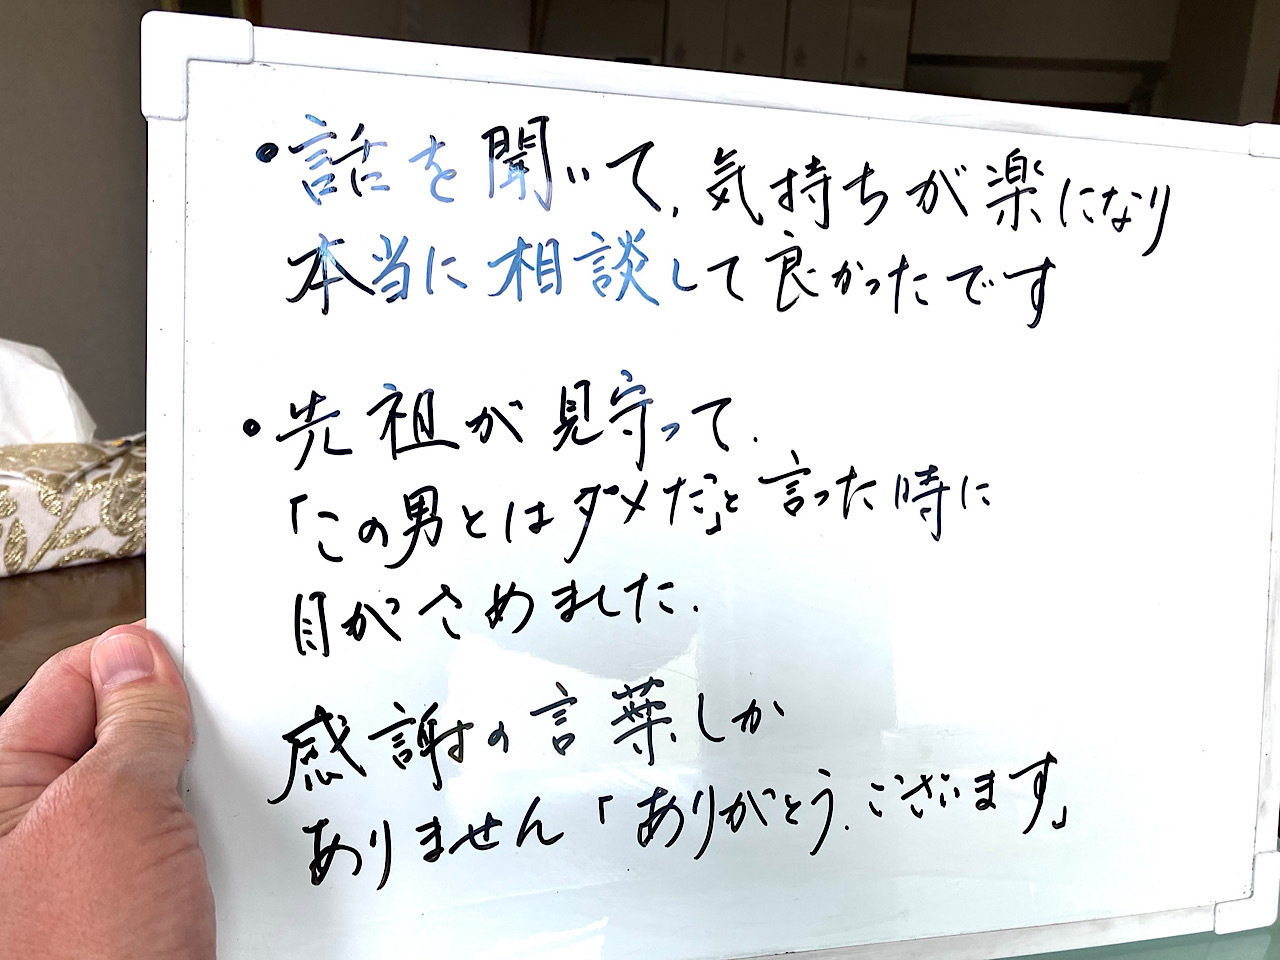 ・話を聞いて、気持ちが楽になり
本当に相談して良かったです
・先祖が見守って、
「この男とはダメだ」と言った時に
目がさめました。
感謝の言葉しか
ありません「ありがとう。ございます」